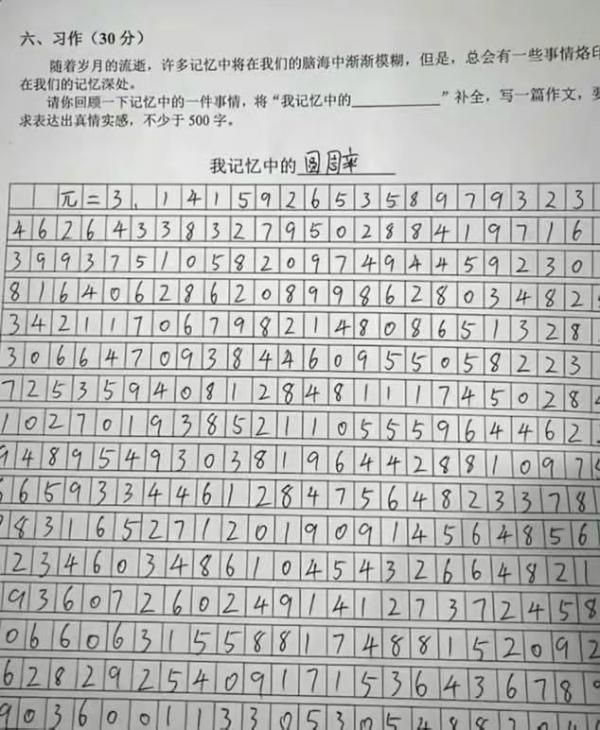 六、习作（30 分）
随着岁月的流逝，许多记忆中将在我们的脑海中渐渐模糊，但是，总会有一些事情烙印
在我们的记忆深处。
请你回顾一下记忆中的一件事情，将“我记忆中的__________”补全，写一篇作文，要
求表达出真情实感，不少于 500 字。
我记忆中的 圆周率
π=3.14159265358979323
46264338327950288419716
39937510582097494459230
8164062862089986280348 2
34211706798214808651328
30664709384460955058223
72535940812848111745028
10270193852110555964462
9489549303819644288109 7
6659334461284756482337 8
8316527120190914564856
2346034861045432664821
9360726024914127372458
0660631558817488152092
6282925409171536436789
903600113305305488204